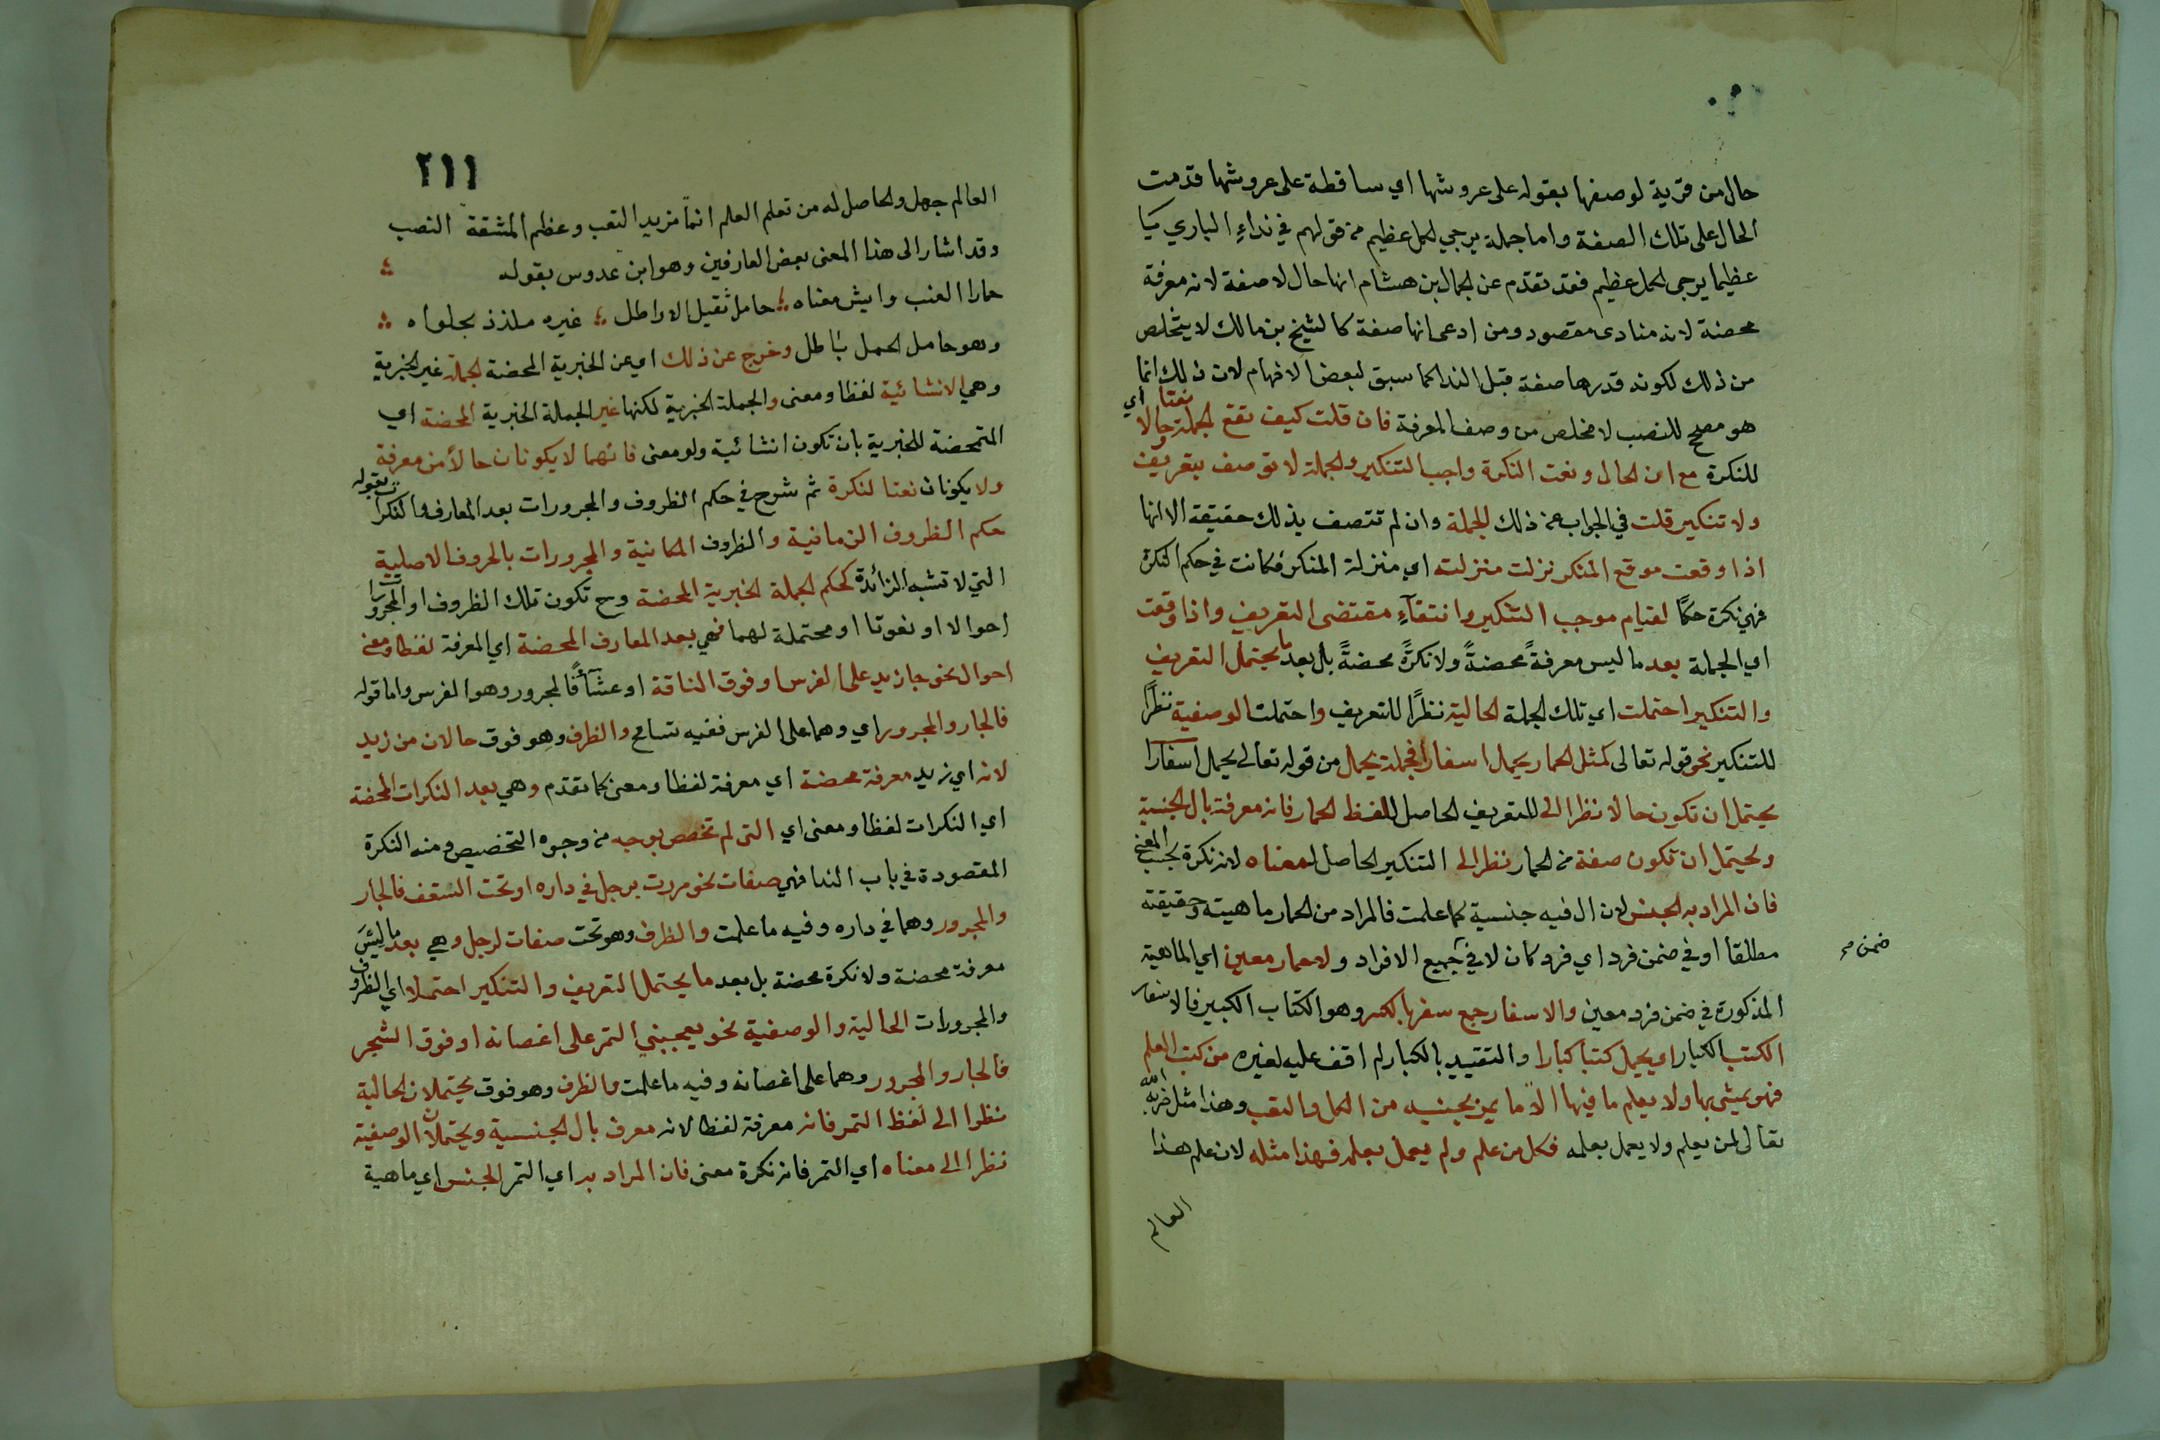 حال من قرية لوصفها بقوله على عروشها اي ساقطة على عروشها قدمت
الحال على تلك الصفة واما جملة يرجي لكل عظيم من قولهم في نداء الباري يا
عظيما يرجى لكل عظيم فقد تقدم عن الجمال بن هشام انها حال لا صفة لانه معرفة
محضة لانه منادى مقصود ومن ادعى انها صفة كالشيخ بن مالك لا يتخلص
من ذلك لكونه قدرها صفة قبل الندا كما سبق لبعض الافهام لان ذلك انما
هو مصحح للنصب لا مخلص من وصف المعرفة فان قلت كيف تقع الجملة حالا و نعتا اي
للنكرة مع ان الحال ونعت النكرة واجب التنكير والجملة لا توصف بتعريف
ولا تنكير قلت في الجواب عن ذلك الجملة وان لم تتصف بذلك حقيقة الا انها
اذا وقعت موقع المنكر نزلت منزلته اي منزلة المنكر فكانت في حكم النكرة
فهي نكرة حكما لقيام موجب التنكير وانتقاء مقتضى التعريف واذا وقعت
اي الجملة بعد ما ليس معرفة محضة ولا نكرة محضة بل بعد ما يحتمل التعريف
والتنكير احتملت اي تلك الجملة الحالية نظرا للتعريف واحتملت الوصفية نظرا
للتنكير نحو قوله تعالى كمثل الحمار يحمل اسفارا فجملة يحمل من قوله تعالى يحمل اسفارا
يحتمل ان تكون حالا نظرا الى للتعريف الحاصل للفظ الحمار فانه معرفة بال الجنسية
ويحتمل ان تكون صفة من الحمار نظرا الى التنكير الحاصل لمعناه لانه نكرة بحسب المعنى
فان المراد به الجنس لان ال فيه جنسية كما علمت فالمراد من الحمار ماهيته وحقيقته
مطلقا او في ضمن فرد اي فرد كان لا في جميع الافراد ولا حمار معين اي الماهية
ضمن صح
المذكورة في ضمن فرد معين والاسفار جمع سفر بالكسر وهو الكتاب الكبير فالاسفار
الكتب الكبار اي يحمل كتبا كبارا والتقييد بالكبار لم اقف عليه لغيره من كتب العلم
فهو يمشي بها ولا يعلم ما فيها الا ما يمر بجنبيه من الكل والتعب وهذا مثل ضربه الله
تعالى لمن يعلم ولا يعمل بعلمه فكل من علم ولم يعمل بعلمه فهذا مثله لان علم هذا
العالم
٢١١
العالم جهل والحاصل له من تعلم العلم انما مزيد التعب وعظم المشقة النصب
وقد اشار الى هذا المعنى بعض العارفين وهو ابن عدوس بقوله
حمار العنب وايش معناه حامل ثقيل الاراطل غيره ملذذ بحلواه
وهو حامل الحمل باطل وخرج عن ذلك اي عن الخبرية المحضة الجملة غير الخبرية
وهي الانشائية لفظا ومعنى والجملة الخبرية لكنها غير الجملة الخبرية المحضة اي
المتمحضة للخبرية بان تكون انشائية ولو معنى فانهما لا يكونان حالا من معرفة
ولا يكونان نعتا لنكرة ثم شرح في حكم الظروف والمجرورات بعد المعارف والنكرات بقوله
حكم الظروف الزمانية والظروف المكانية والمجرورات بالحروف الاصلية
التي لا تشبه الزائدة كحكم الجملة الخبرية المحضة وح تكون تلك الظروف او المجرورات
احوالا او نعوتا او محتملة لهما فهي بعد المعارف المحضة اي المعرفة لفظا ومعنى
احوال نحو جا زيد على الفرس او فوق الناقة او عشاء فالمجرور وهو الفرس واما قوله
فالجار والمجرور اي وهما على الفرس ففيه تسامح والظرف وهو فوق حالان من زيد
لانه اي زيد معرفة محضة اي معرفة لفظا ومعنى كما تقدم وهي بعد النكرات المحضة
اي النكرات لفظا ومعنى اي التي لم تخصص بوجه من وجوه التخصيص ومنه النكرة
المقصودة في باب الندا فهي صفات نحو مررت برجل في داره او تحت السقف فالجار
والمجرور وهما في داره وفيه ما علمت والظرف وهو تحت صفات لرجل وهي بعد ما ليس
معرفة محضة ولا نكرة محضة بل بعد ما يحتمل التعريف والتنكير احتملا اي الظروف
والمجرورات الحالية والوصفية نحو يعجبني التمر على اغصانه او فوق الشجر
فالجار والمجرور وهما على اغصانه وفيه ما علمت والظرف وهو فوق يحتملان الحالية
نظرا الى لفظ التمر فانه معرفة لفظا لانه معرف بال الجنسية ويحتملان الوصفية
نظرا الى معناه اي التمر فانه نكرة معنى فان المراد به اي التمر الجنس اي ماهية